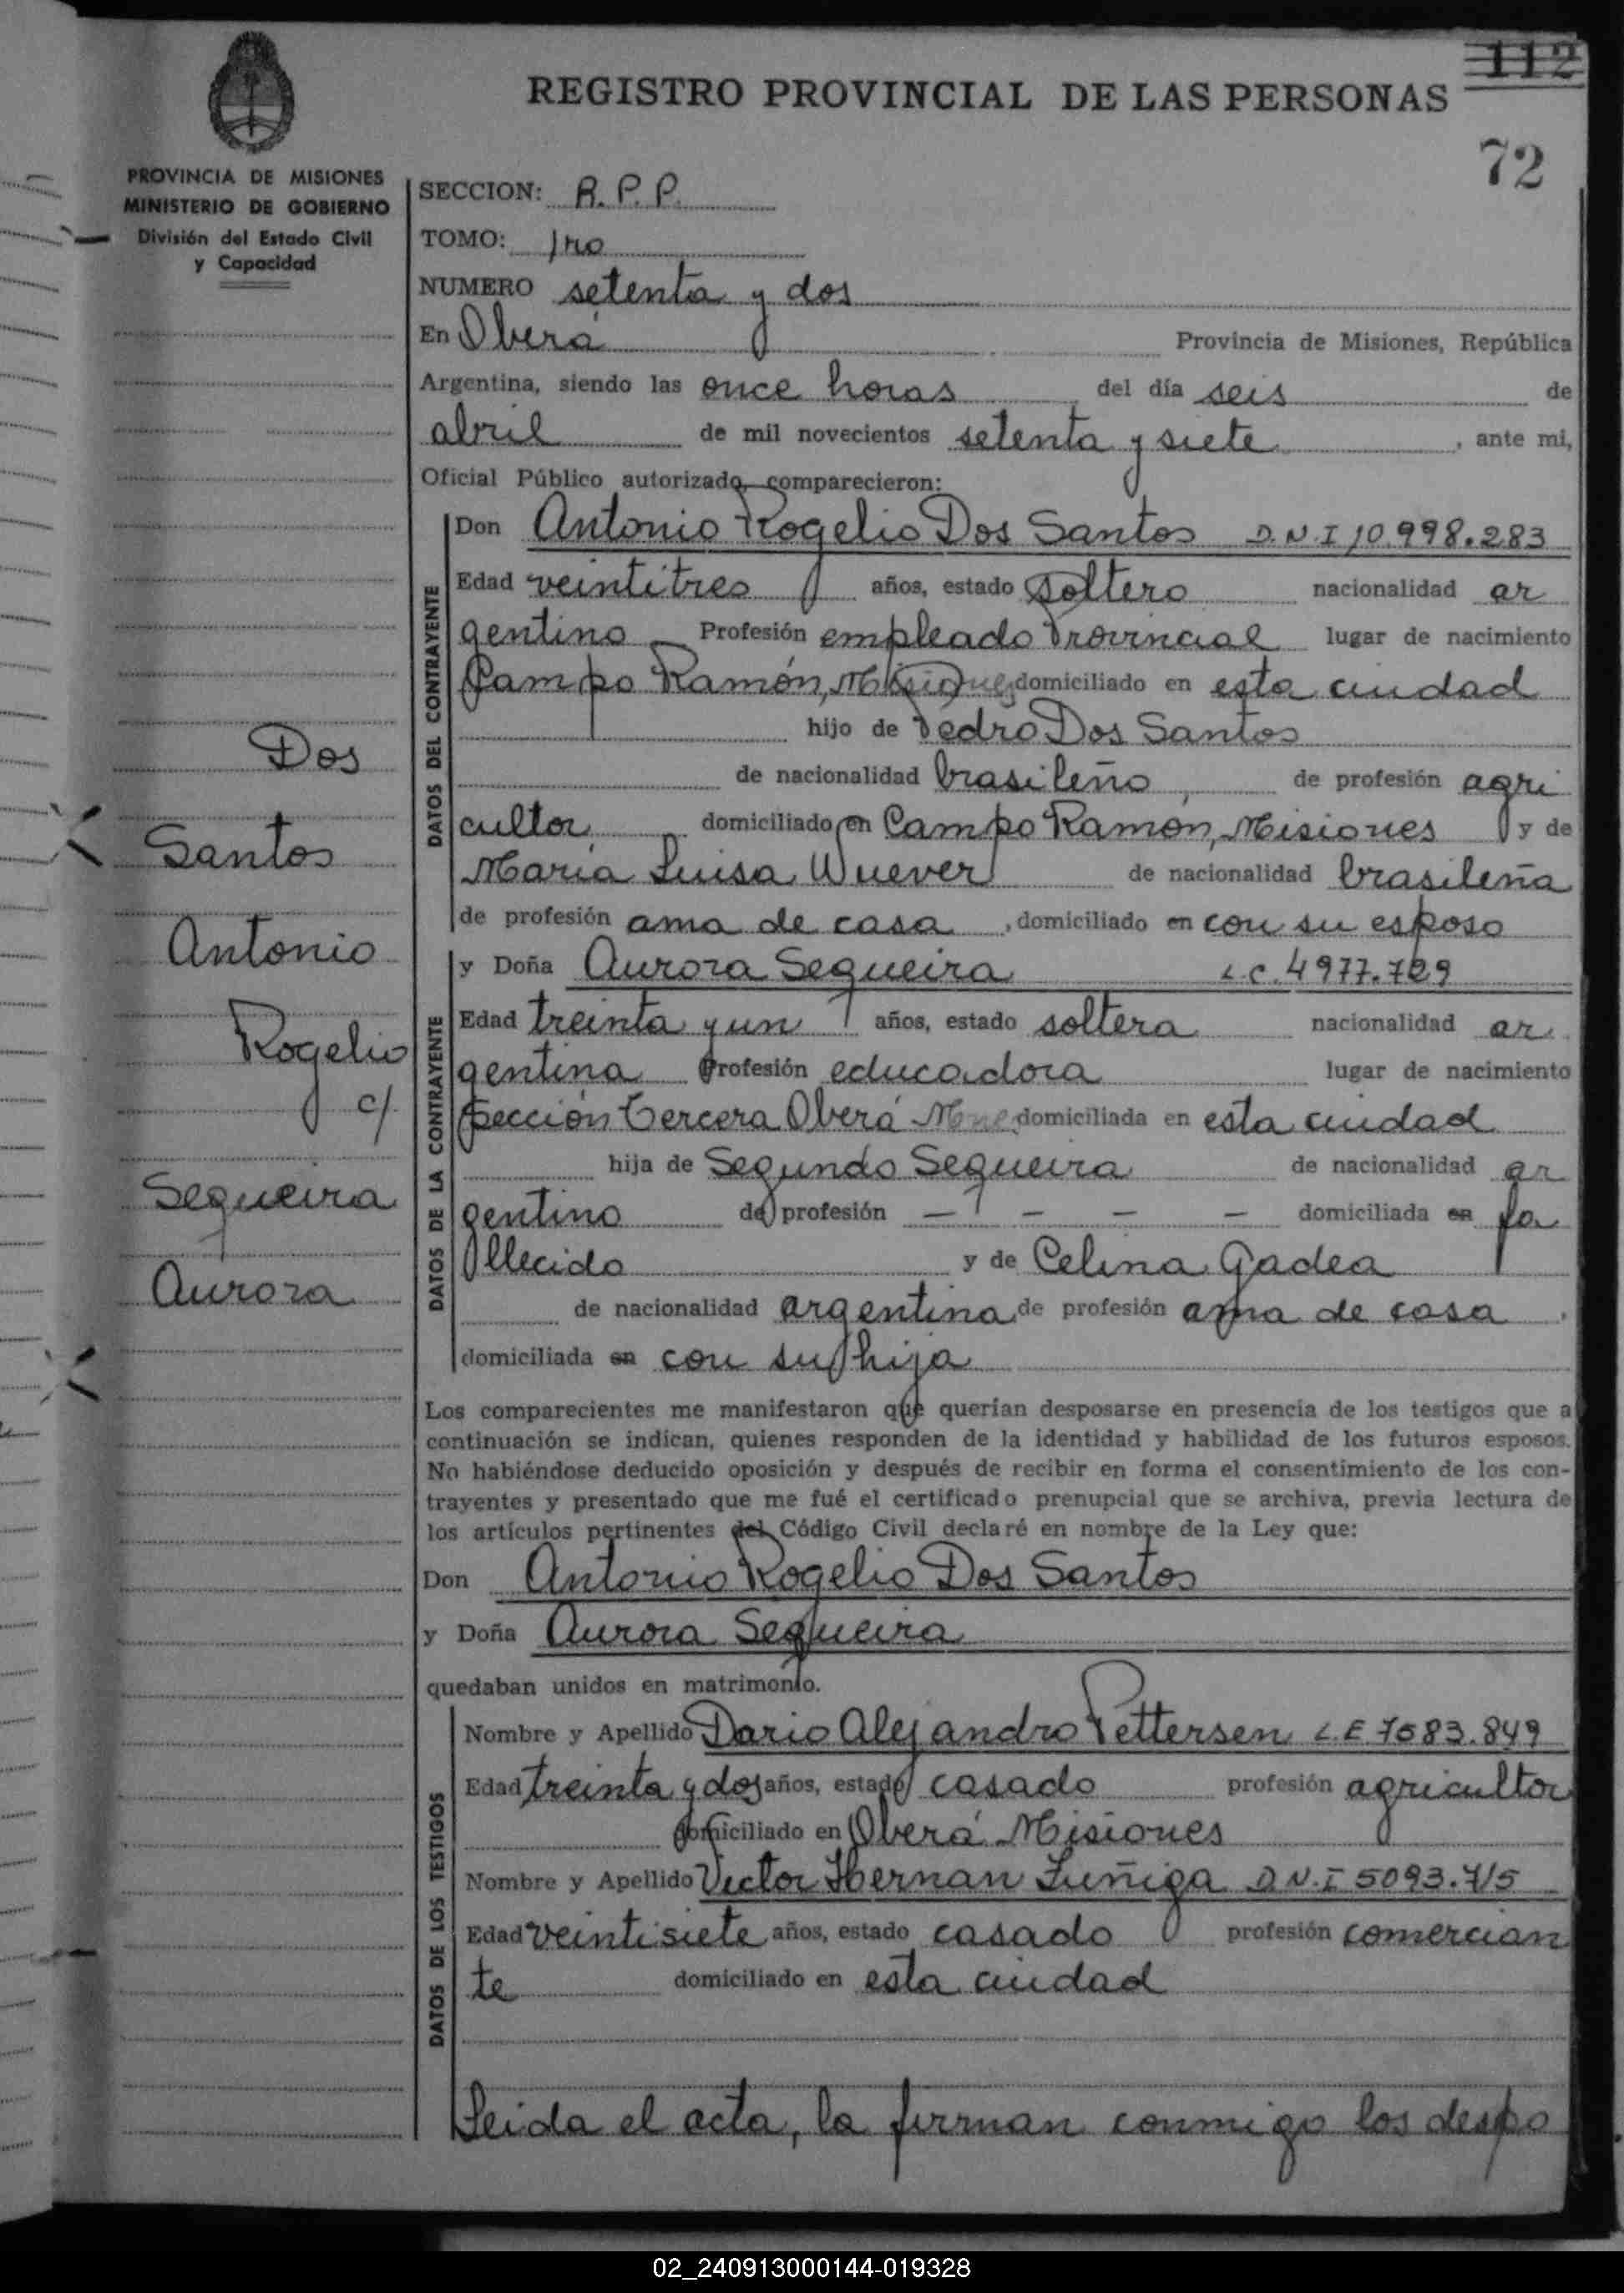 112
REGISTRO PROVINCIAL DE LAS PERSONAS
72
PROVINCIA DE MISIONES
MINISTERIO DE GOBIERNO
División del Estado Civil
y Capacidad
SECCION: R.P.P.
TOMO: 1ro
NUMERO setenta y dos
En Oberá Provincia de Misiones, República
Argentina, siendo las once horas del día seis de
abril de mil novecientos setenta y siete, ante mi,
Oficial Público autorizado, comparecieron:
DATOS DEL CONTRAYENTE
Don Antonio Rogelio Dos Santos D.N.I 10.998.283
Edad veintitres años, estado soltero nacionalidad ar
gentino Profesión empleado Provincial lugar de nacimiento
Campo Ramón, Misiones domiciliado en esta ciudad
hijo de Pedro Dos Santos
de nacionalidad brasileño, de profesión agri
cultor domiciliado en Campo Ramón, Misiones y de
María Luisa Wuever de nacionalidad brasileña
de profesión ama de casa, domiciliado en con su esposo
DATOS DE LA CONTRAYENTE
y Doña Aurora Sequeira L.C. 4977.729
Edad treinta y un años, estado soltera nacionalidad ar
gentina Profesión educadora lugar de nacimiento
Sección Tercera Oberá Mnes domiciliada en esta ciudad
hija de Segundo Sequeira de nacionalidad ar
gentino de profesión — — — — domiciliada en fa
llecido y de Celina Gadea
de nacionalidad argentina de profesión ama de casa.
domiciliada en con su hija
Dos
Santos
Antonio
Rogelio
c/
Sequeira
Aurora
Los comparecientes me manifestaron que querían desposarse en presencia de los testigos que a
continuación se indican, quienes responden de la identidad y habilidad de los futuros esposos.
No habiéndose deducido oposición y después de recibir en forma el consentimiento de los con-
trayentes y presentado que me fué el certificado prenupcial que se archiva, previa lectura de
los artículos pertinentes del Código Civil declaré en nombre de la Ley que:
Don Antonio Rogelio Dos Santos
y Doña Aurora Sequeira
quedaban unidos en matrimonio.
DATOS DE LOS TESTIGOS
Nombre y Apellido Dario Alejandro Pettersen L.E 7583.849
Edad treinta y dos años, estado casado profesión agricultor
domiciliado en Oberá Misiones
Nombre y Apellido Victor Hernan Zuñiga D.N.I 5093.715
Edad veintisiete años, estado casado profesión comercian
te domiciliado en esta ciudad
Leida el acta, la firman conmigo los despo
02_240913000144-019328